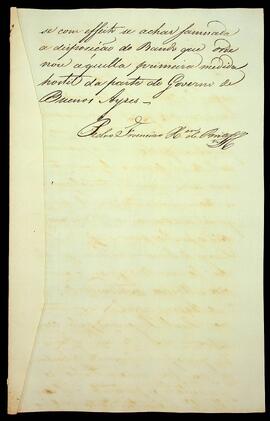 se com effeito se achar sanccionada
a disposição do Bando que orde
nou aquella primeira medida
hostil da parte do Governo de
Buenos Ayres_
Pedro